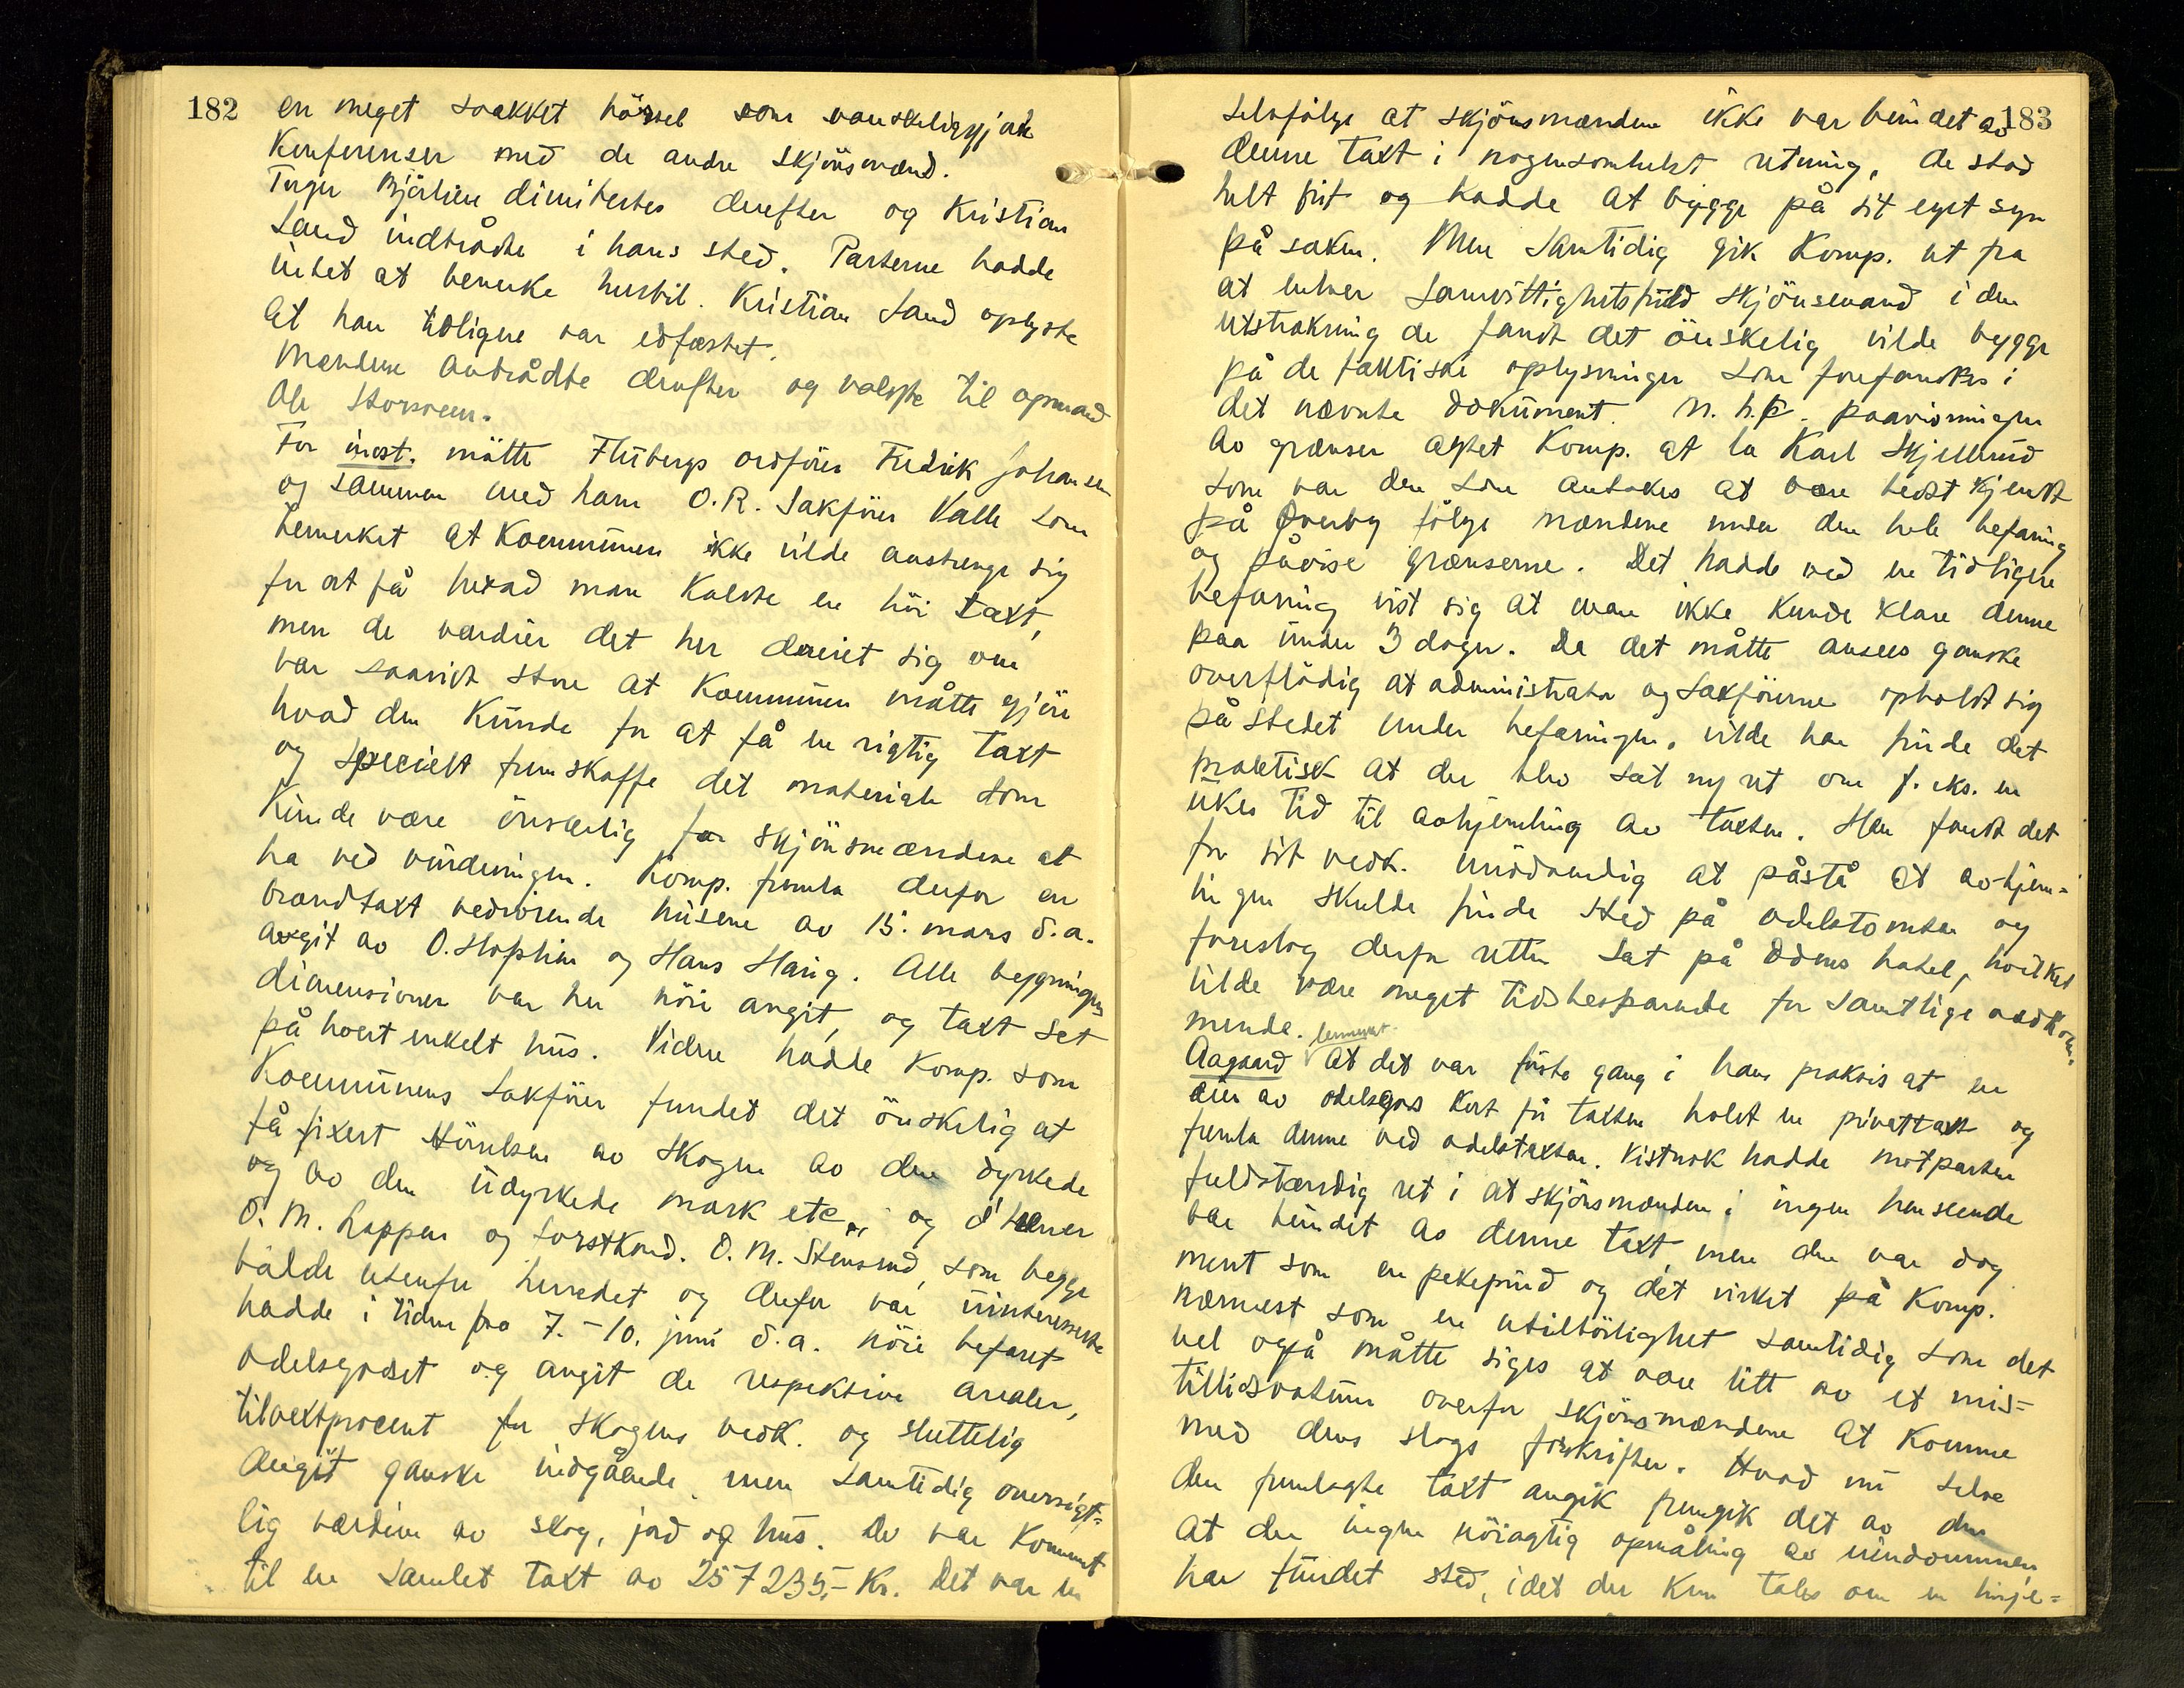 182
en meget svækket hørsel som vanskeliggjør
Konferenser med de andre skjønsmænd.
dimitertes derefter og Kristian
Sand indtrådte i hans sted. Parterne hadde
intet at bemerke hertil. Kristian Sand oplyste
at han tidligere var edfæstet.
Mændene antrådte derefter og valgte til opmand
Ole Storsveen.
For inst. møtte Fluberg ordfører Fredrik Johansen
og sammen med ham O.R. Sakfører Valle som
bemerket at Kommunen ikke vilde anstrenge sig
for at få hvad man Kaldte en høi taxt,
men de værdier det her dreiet sig om
var saavidt store at Kommunen måtte gjøre
hvad den Kunde for at få en rigtig taxt
og specielt fremskaffe det materiale som
Kunde være ønskelig for skjønsmændene at
ha ved vurderingen. Komp. fremla derfor en
brandtaxt vedrørende husene av 15. mars d.a.
avgit av O. Hofslien og Hans Haug. Alle bygningers
dimensioner var her nøie angit, og taxt set
på hvert enkelt hus. Videre hadde Komp. som
Kommunens Sakfører fundet det ønskelig at
få fixert størrelsen av skogen av den dyrkede
og av den udyrkede mark etc., og d'herrer
O. M. Lappen og forstkand. O. M. Stensrud, som begge
bodde utenfor herredet og derfor var uinteresserte
hadde i tiden fra 7.-10. juni d.a. nøie befaret
odelsgodset og angit de respektive arealer,
tilvextprocent for skogens vedk. og sluttelig
angit ganske indgående men samtidig oversigt=
lig værdien av skog, jord og hus. De var Kommet
til en samlet taxt av 257235,- Kr. Det var en
183
selvfølge at skjønsmændene ikke var bundet av
denne taxt i nogensomhelst retning, de stod
helt frit og hadde at bygge på sit eget syn
på saken. Men samtidig gik Komp. ut fra
at enhver samvittighetsfuld skjønsmand i den
utstrækning de fandt det ønskelig vilde bygge
på de faktiske oplysninger som forefandtes i
det nævnte dokument. M. h. p. paavisningen
av grænser agtet Komp. at la Karl Skjellerud
som var den som antokes at være bedst Kjendt
på Øverby følge mændene under den hele befaring
og påvise grænserne. Det hadde ved en tidligere
befaring vist sig at man ikke Kunde Klare denne
paa under 3 dager. Da det måtte ansees ganske
overflødig at administrator og Sakførerne opholdt sig
på stedet under befaringen, vilde han finde det
praktisk at der blev sat ny ret om f. eks. en
ukes tid til avhjemling av taxten. Han fandt det
for sit vedk. unødvendig at påstå at avhjem=
lingen skulde finde sted på odelstomten og
foreslog derfor retten sat på Odens hotel, hvilket
vilde være meget tidsbesparende for samtlige vedkom=
mende.
Aagaard bemerket at det var første gang i hans praksis at en
eier av odelsgods Kort før taxten holdt en privattaxt og
fremla denne ved odelstaxten. Vistnok hadde motparten
fuldstændig ret i at skjønsmændene i ingen henseende
var bundet av denne taxt, men den var dog
ment som en pekepind og det virket på Komp.
nærmest som en utilbørlighet samtidig som det
vel også måtte siges at være litt av et mis=
tillidsvotum overfor skjønsmændene at Komme
med dens slags forskrifter. Hvad nu selve
den fremlagte taxt angik fremgik det av den
at der ingen nøiagtig opmåling av eiendommen
har fundet sted, idet der Kun tales om en linje=